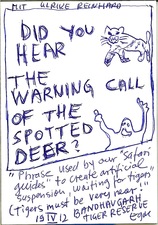 MIT ULRIKE REINHARD
DID YOU
HEAR
THE
WARNING CALL
OF THE
SPOTTED
DEER?
"Phrase used by our "Safari
guides" to create artificial
suspension waiting for tigers
(tigers must be very near!"
BANDHAVGARH
19 IV 12 TIGER RESERVE